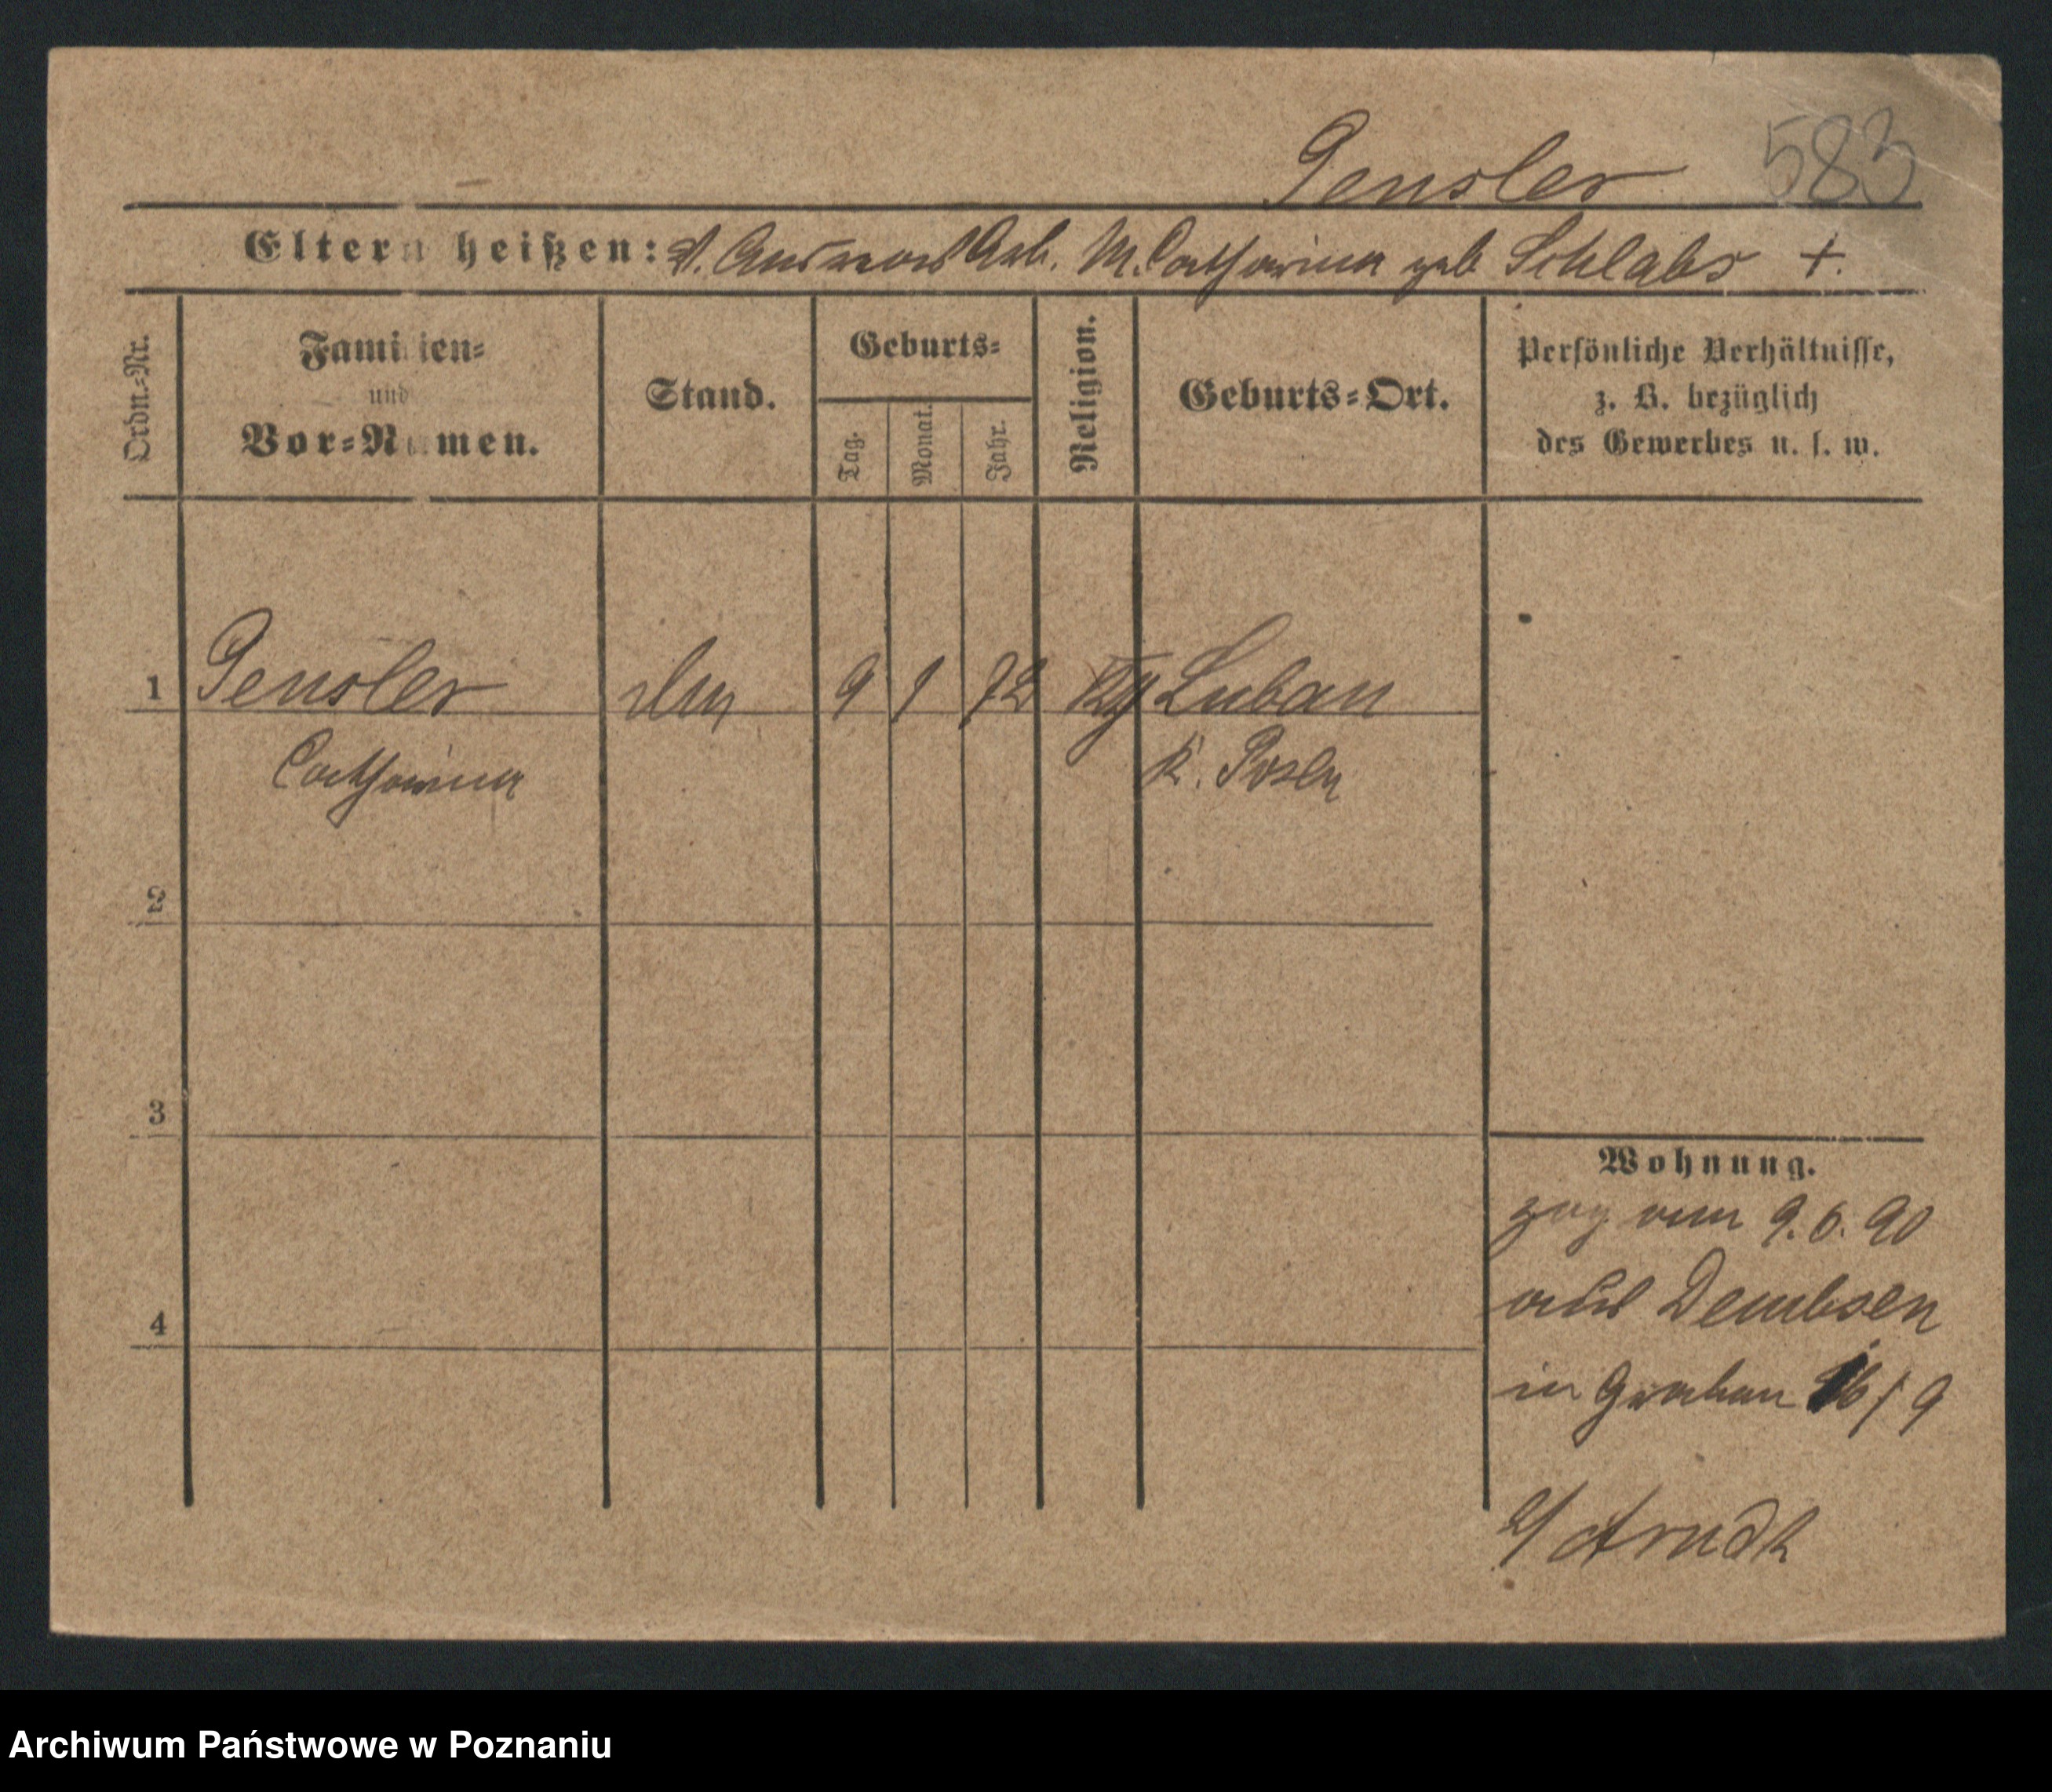 Pensler 583
Eltern heißen: V. Andreas Arb. M. Catharina geb Schlabs +.
Ordn.-Nr.
Familien-
und
Vor-Namen.
Stand.
Geburts-
Tag.
Monat.
Jahr.
Religion.
Geburts-Ort.
Persönliche Verhältnisse,
z. B. bezüglich
des Gewerbes u. s. w.
1 Pensler 9 1 72 Luban
Catharina K. Posen
2
3
4
Wohnung.
zog am 9.6.90
aus Dembsen
in Graben /9
b/ Arndt
Archiwum Państwowe w Poznaniu